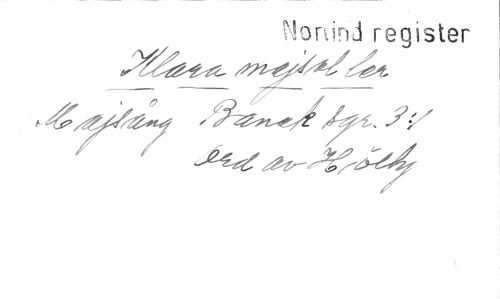 Norlind register
Klara majsol ler
Majsång Banck sgr. 3:1
ord av H